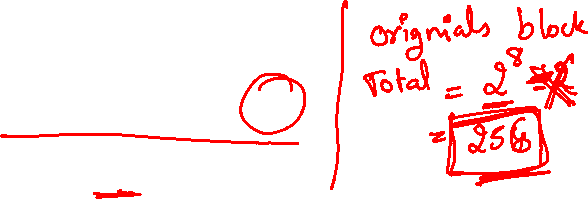 orignials block
Total = 2^8
= 256